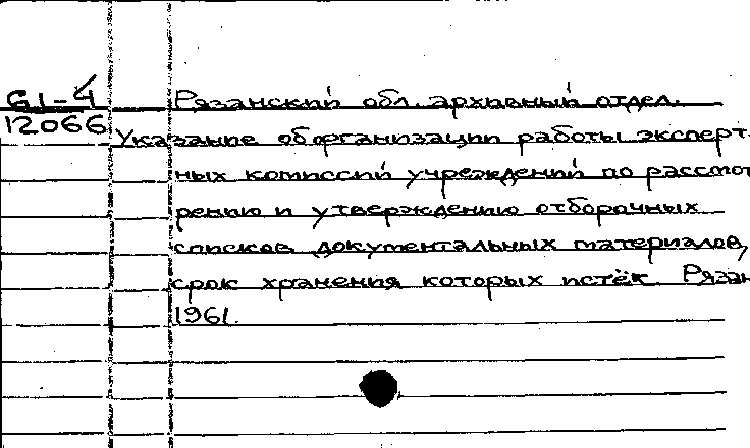 61-4
12066
Рязанский обл. архивный отдел.
Указание об организации работы эксперт-
ных комиссий учреждений по рассмот
рению и утверждению отборочных
списков документальных материалов,
срок хранения которых истёк. Рязан
1961.